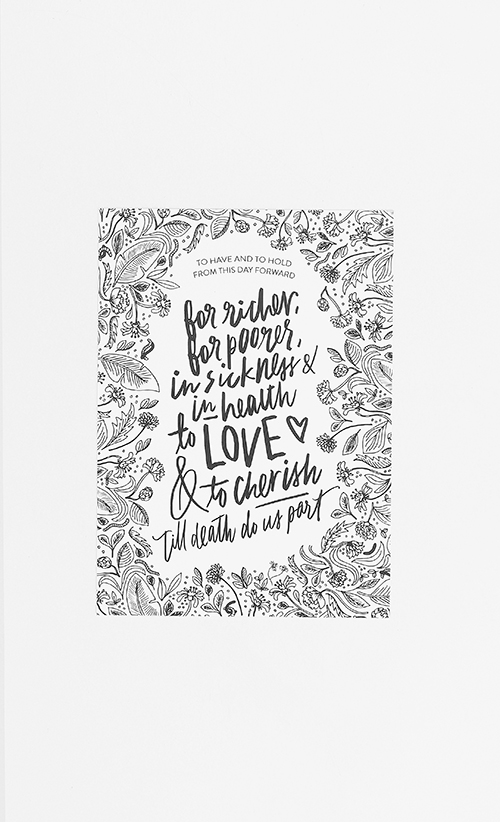 TO HAVE AND TO HOLD
FROM THIS DAY FORWARD
for richer,
for poorer,
in sickness &
in health
to LOVE
& to cherish
till death do us part